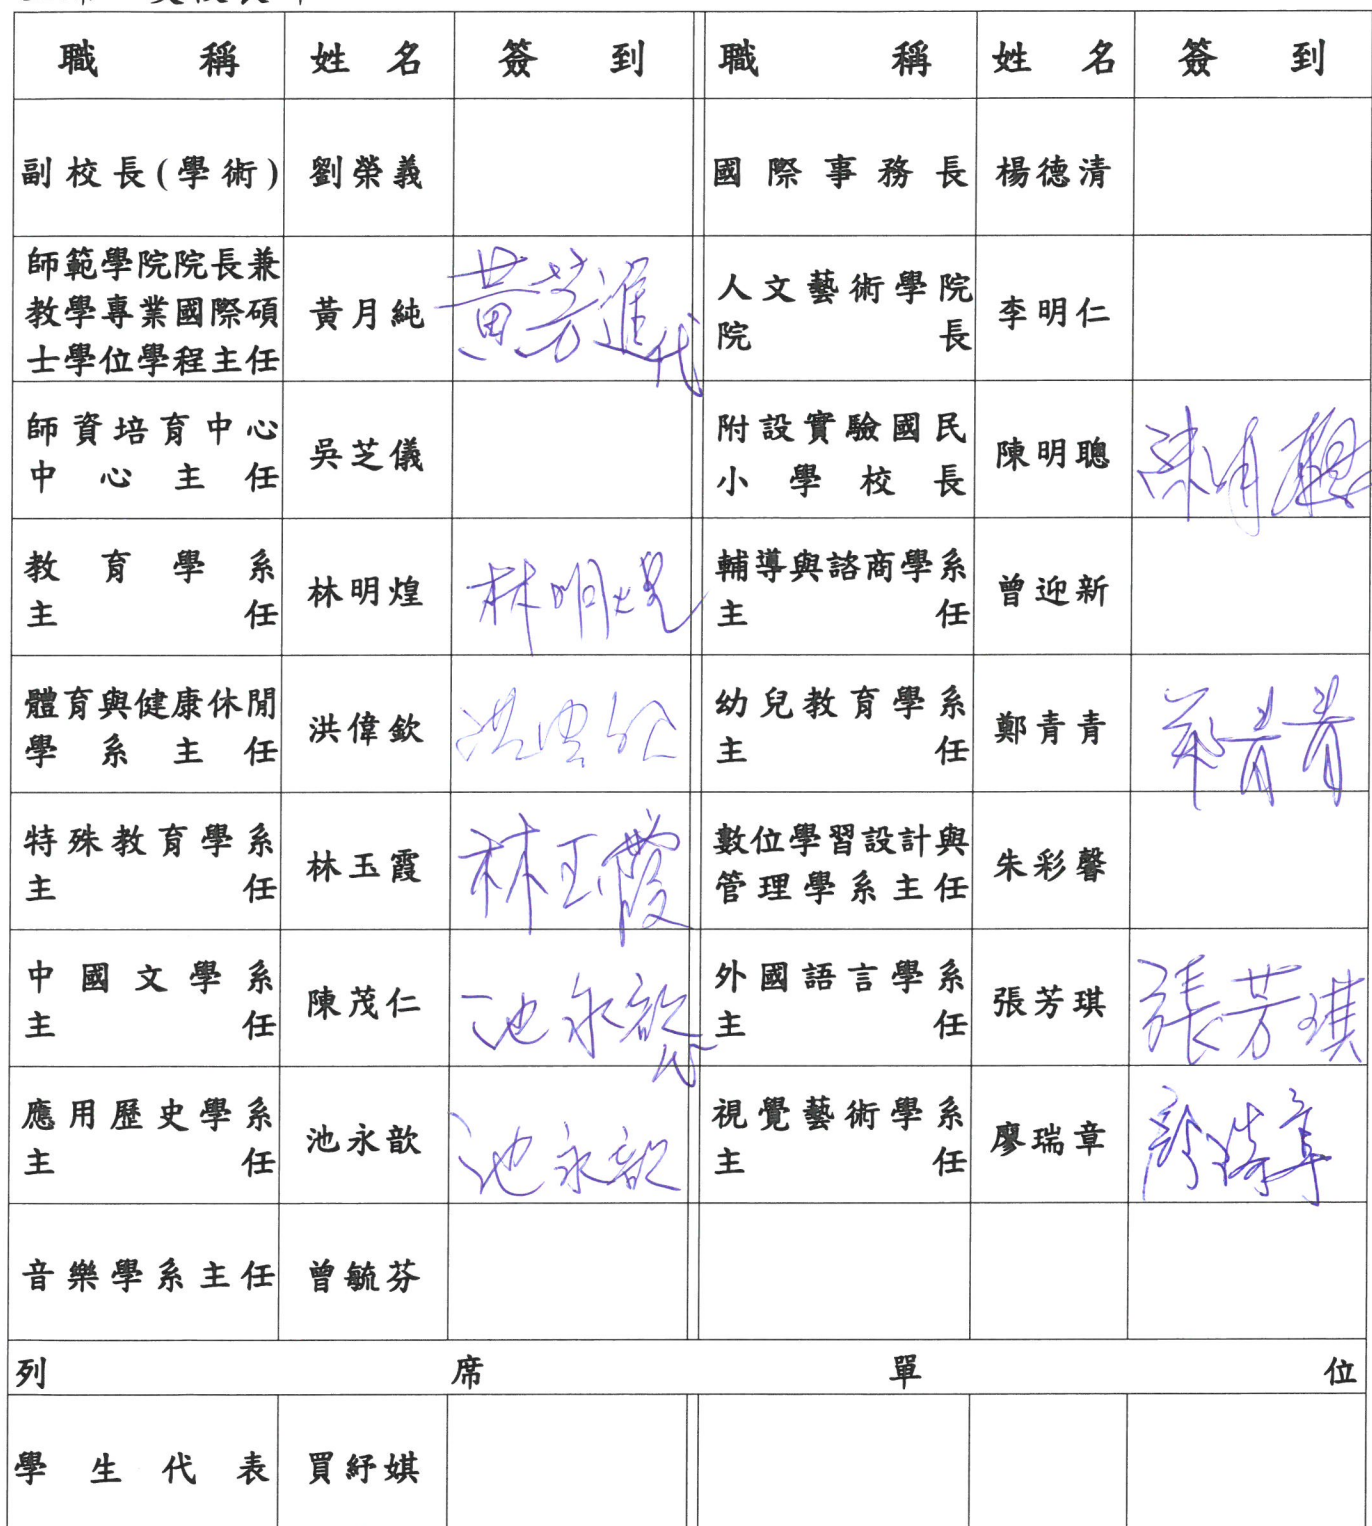 職稱 姓名 簽到 職稱 姓名 簽到
副校長(學術) 劉榮義 國際事務長 楊德清
師範學院院長兼
教學專業國際碩
士學位學程主任
黃月純
黃芳進代
人文藝術學院
院長
李明仁
師資培育中心
中心主任
吳芝儀
附設實驗國民
小學校長
陳明聰
陳明聰
教育學系
主任
林明煌
林明煌
輔導與諮商學系
主任
曾迎新
體育與健康休閒
學系主任
洪偉欽
洪偉欽
幼兒教育學系
主任
鄭青青
鄭青青
特殊教育學系
主任
林玉霞
林玉霞
數位學習設計與
管理學系主任
朱彩馨
中國文學系
主任
陳茂仁
池永歆代
外國語言學系
主任
張芳琪
張芳琪
應用歷史學系
主任
池永歆
池永歆
視覺藝術學系
主任
廖瑞章
廖瑞章
音樂學系主任 曾毓芬
列席單位
學生代表 買紓娸